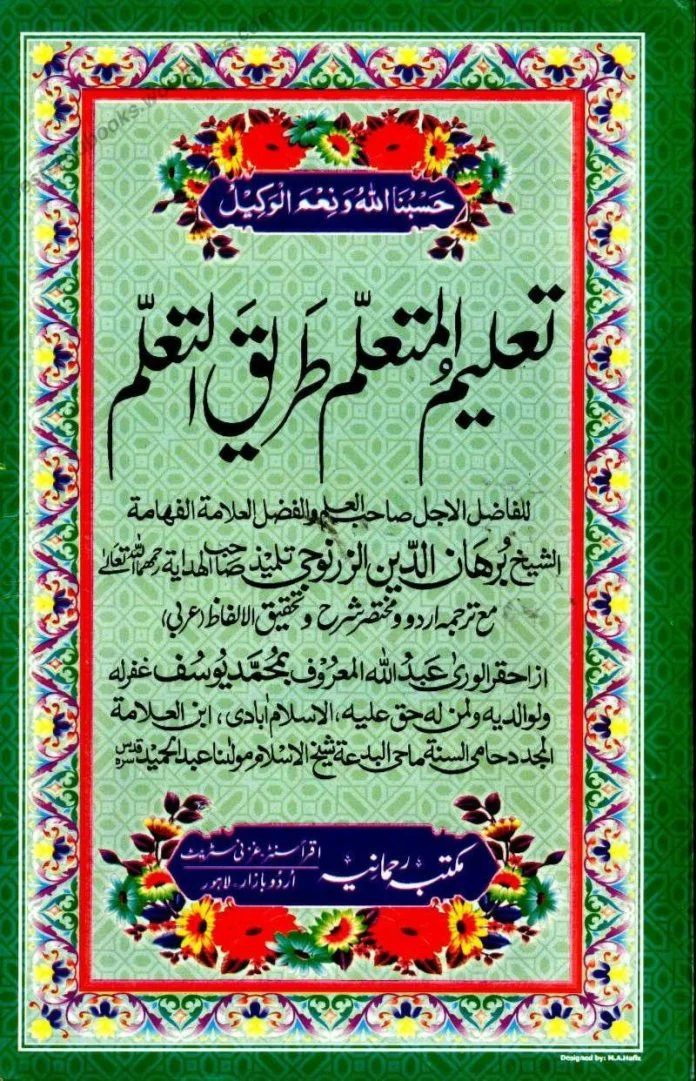 حَسْبُنَا اللهُ وَنِعْمَ الْوَكِيْلُ
تعلیمُ المتعلّم طَریقَ التعلّم
للفاضل الاجل صاحب العلم والفضل العلامة الفهامة
الشیخ بُرهَان الدّین الزرنوجی تلمیذ صاحب الهدایة رحمهما الله تعالیٰ
مع ترجمہ اردو و مختصر شرح و تحقیق الالفاظ (عربی)
از احقر الوریٰ عَبیدُ الله المعروف بمُحَمَّد یُوسُف غفرله
ولوالدیه ولمن له حق علیه، الاسلام ابادی، ابن العلامة
المجدد حامی السنة ماحی البدعة شیخ الاسلام مولٰنا عبد الحمید قدس سره
مکتبہ رحمانیہ
اقرأ سنٹر غزنی سٹریٹ
اُردو بازار - لاہور
Designed by: M.A.Hafiz